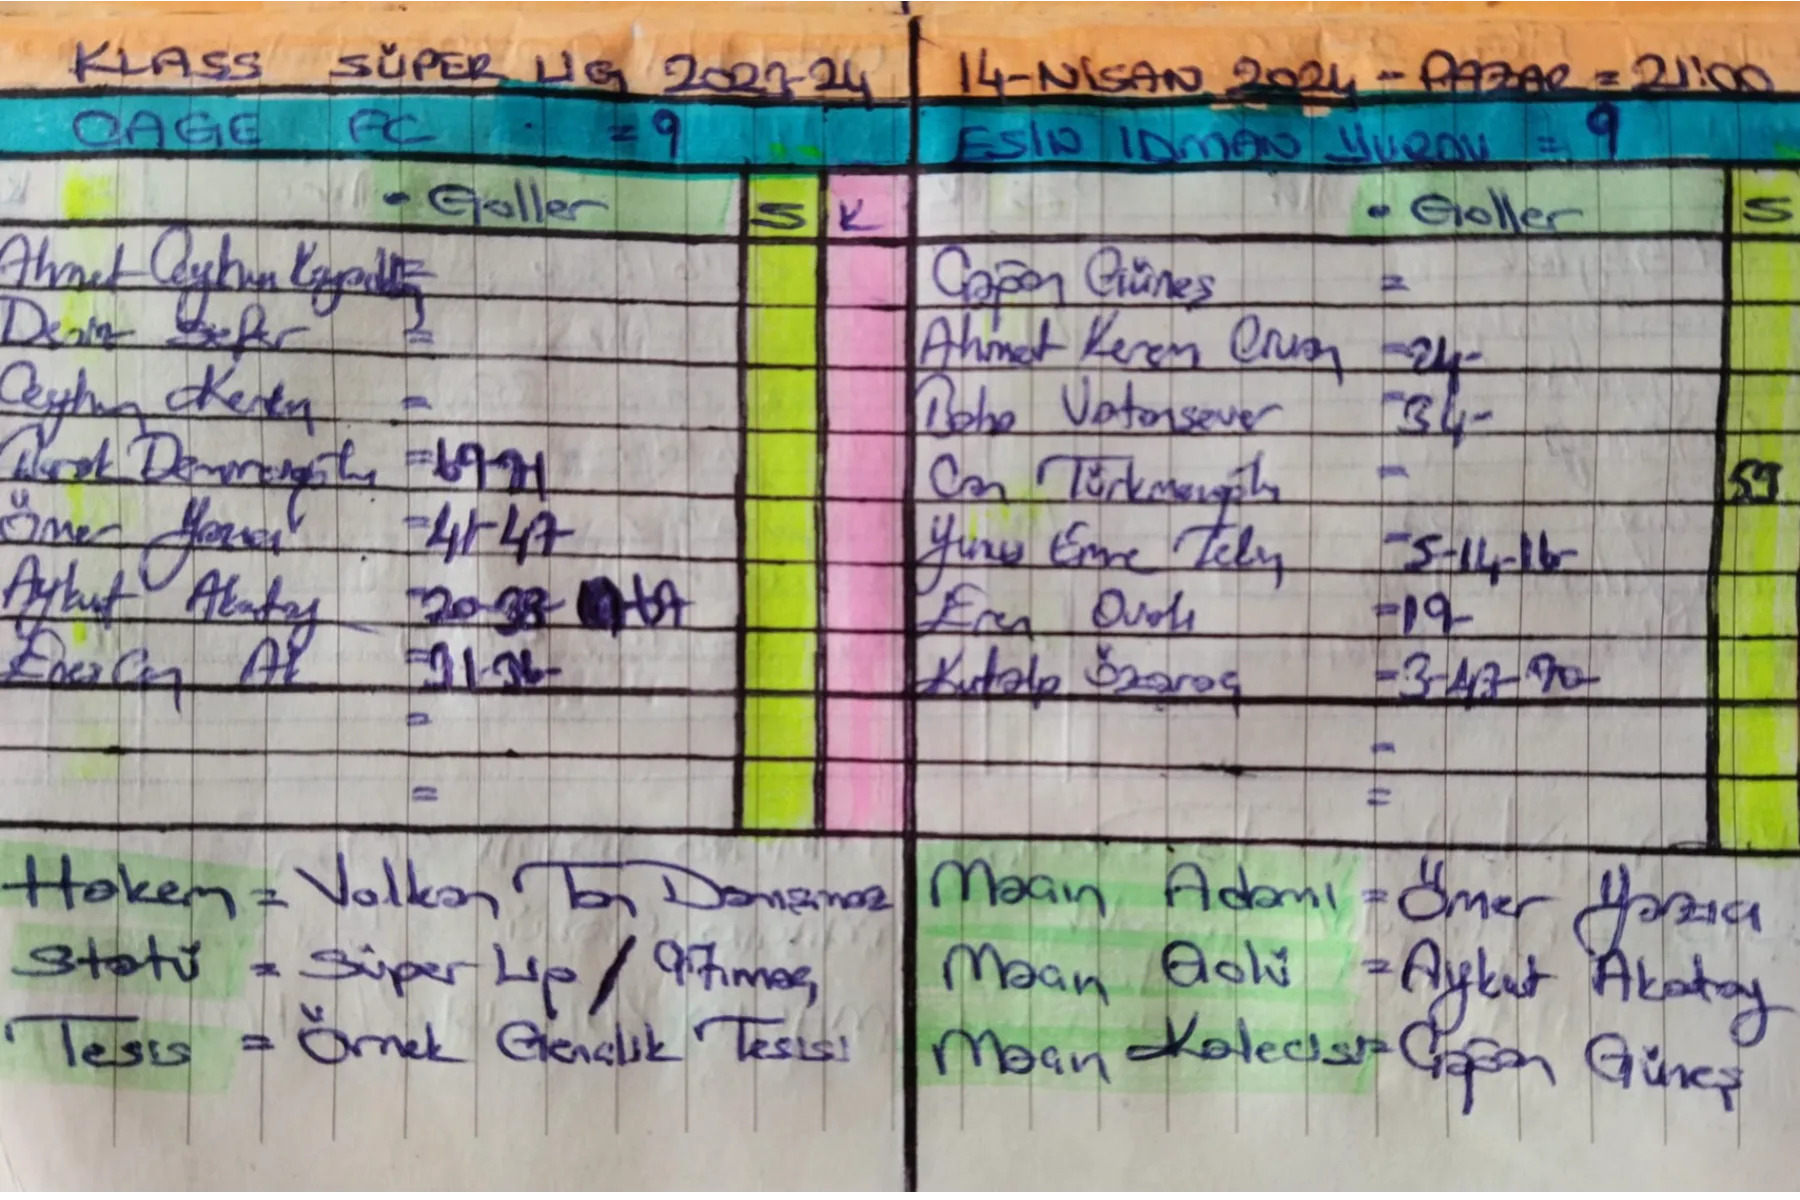 KLASS SÜPER LİG 2023-24
14-NİSAN 2024 - PAZAR = 21:00
CAGE FC = 9
ESİN İDMAN YURDU = 9
• Goller S K
• Goller S
Ahmet Ceyhun =
Deniz Sefer =
Ceyhun Keren =
=69-71
Ömer Yazıcı =41-47-
Aykut Akatay =20-38- -67
Enes Can Ak =31-36-
=
=
Çağan Güneş =
Ahmet Kerem =24-
Vatansever =34-
Can Türkmenoğlu = 59
Yunus Emre =5-14-16-
Eren Ovalı =19-
Kutalp Özaraç =3-47-70-
=
=
Hakem = Volkan Tan Danışmaz
Statü = Süper Lig / 97.maç
Tesis = Örnek Gençlik Tesisi
Maçın Adamı = Ömer Yazıcı
Maçın Golü = Aykut Akatay
Maçın Kalecisi = Çağan Güneş